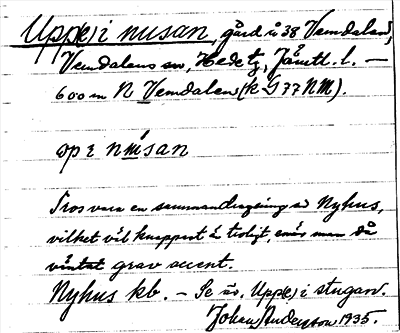 Upp(e) i nusan, gård å 38 Vemdalen,
Vemdalens sn, Hede tg, Jämtl. l. —
600 m N Vemdalen (k G 77 NM).
op ɛ nusan
Tros vara en sammandragning av Nyhus,
vilket väl knappast är troligt, enär man då
väntat grav accent.
Nyhus kb. — Se äv. Upp(e) i stugan.
Johan Anderson 1935.